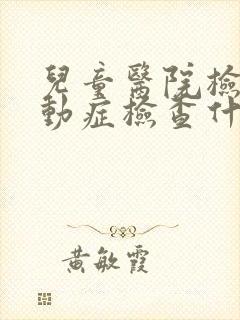 兒童醫院檢
動症檢查什
黃敏霞